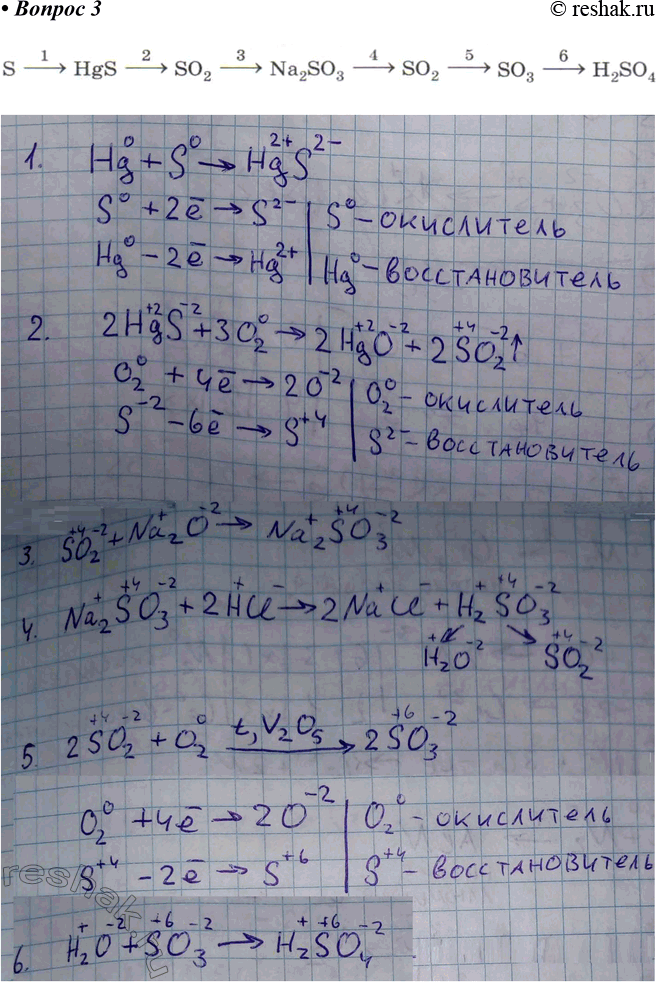 • Вопрос 3
© reshak.ru
S —1→ HgS —2→ SO₂ —3→ Na₂SO₃ —4→ SO₂ —5→ SO₃ —6→ H₂SO₄
1. Hg⁰ + S⁰ → Hg²⁺S²⁻
S⁰ + 2ē → S²⁻ | S⁰ – окислитель
Hg⁰ – 2ē → Hg²⁺ | Hg⁰ – восстановитель
2. 2Hg⁺²S⁻² + 3O₂⁰ → 2Hg⁺²O⁻² + 2S⁺⁴O₂⁻²↑
O₂⁰ + 4ē → 2O⁻² | O₂⁰ – окислитель
S⁻² – 6ē → S⁺⁴ | S²⁻ – восстановитель
3. S⁺⁴O₂⁻² + Na₂⁺O⁻² → Na₂⁺S⁺⁴O₃⁻²
4. Na₂⁺S⁺⁴O₃⁻² + 2H⁺Cl⁻ → 2Na⁺Cl⁻ + H₂⁺S⁺⁴O₃⁻²
↙ ↘
H₂⁺O⁻² S⁺⁴O₂⁻²
5. 2S⁺⁴O₂⁻² + O₂⁰ —t, V₂O₅→ 2S⁺⁶O₃⁻²
O₂⁰ + 4ē → 2O⁻² | O₂⁰ – окислитель
S⁺⁴ – 2ē → S⁺⁶ | S⁺⁴ – восстановитель
6. H₂⁺O⁻² + S⁺⁶O₃⁻² → H₂⁺S⁺⁶O₄⁻²